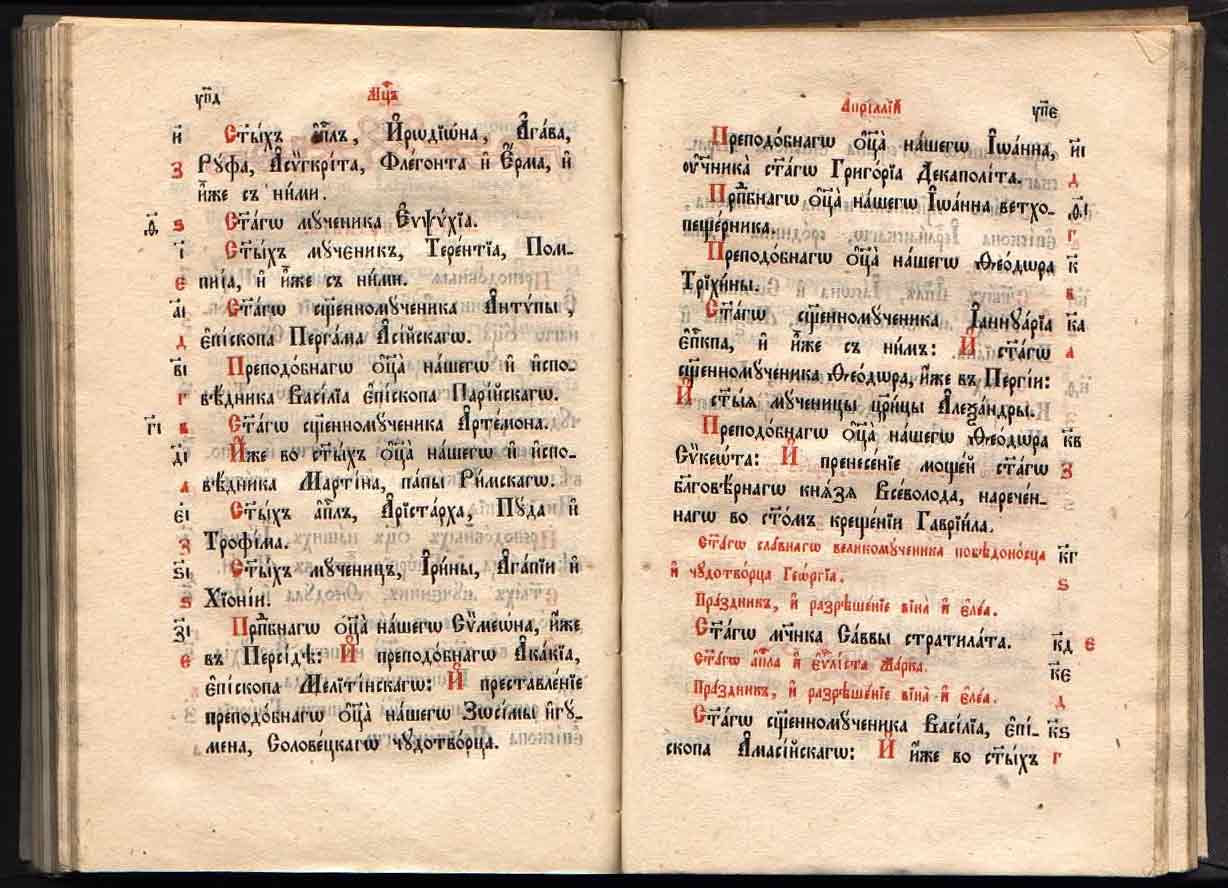 у҃пд Мц҃ъ
и҃ Ст҃ы́хъ а҆п҃лъ, И҆рѡдїѡ́на, А҆га́ва,
з Рꙋ́фа, А҆сѷгкрі́та, Фле́гонта и҆ Е҆́рма, и҆
и҆̀же съ ни́ми.
ѳ҃ ѕ Ст҃а́гѡ мꙋ́ченика Е҆ѵѱѵ́хїа.
і҃ Ст҃ы́хъ мꙋ́ченикъ, Тере́нтїа, Пом-
є пи́їа, и҆ и҆̀же съ ни́ми.
а҃і Ст҃а́гѡ сщ҃енномꙋ́ченика А҆нті́пы,
д є҆пі́скопа Перга́ма А҆сі́йскагѡ.
в҃і Преподо́бнагѡ ѻ҆ц҃а̀ на́шегѡ и҆ и҆спо-
г вѣ́дника Васі́лїа є҆пі́скопа Парі́йскагѡ.
г҃і в Ст҃а́гѡ сщ҃енномꙋ́ченика А҆ртє́мона.
д҃і И҆́же во ст҃ы́хъ ѻ҆ц҃а̀ на́шегѡ и҆ и҆спо-
а вѣ́дника Марті́на, па́пы Ри́мскагѡ.
є҃і Ст҃ы́хъ а҆п҃лъ, А҆ріста́рха, Пꙋ́да и҆
з Трофі́ма.
ѕ҃і Ст҃ы́хъ мꙋ́ченицъ, І҆ри́ны, А҆га́пїи и҆
ѕ Хїо́нїи.
з҃і Прпⷣбнагѡ ѻ҆ц҃а̀ на́шегѡ Сѷмеѡ́на, и҆́же
є въ Персі́дѣ: И҆ преподо́бнагѡ А҆ка́кїа,
є҆пі́скопа Меліті́нскагѡ: И҆ преставле́нїе
преподо́бнагѡ ѻ҆ц҃а̀ на́шегѡ Зѡсі́мы и҆гꙋ́-
мена, Солове́цкагѡ чꙋдотво́рца.
А҆прі́ллїй у҃пє
Преподо́бнагѡ ѻ҆ц҃а̀ на́шегѡ І҆ѡа́нна, и҃і
ᲂу҆чн҃ика̀ ст҃а́гѡ Григо́рїа Декаполі́та. д
Прпⷣбнагѡ ѻ҆ц҃а̀ на́шегѡ І҆ѡа́нна ветхо- ѳ҃і
пеще́рника. г
Преподо́бнагѡ ѻ҆ц҃а̀ на́шегѡ Ѳео́дѡра к҃
Трїхи́ны. в
Ст҃а́гѡ сщ҃енномꙋ́ченика І҆аннꙋа́рїа к҃а
є҆пⷭ҇кпа, и҆ и҆̀же съ ни́мъ: И҆ ст҃а́гѡ а
сщ҃енномꙋ́ченика Ѳео́дѡра, и҆́же въ Пе́ргїи:
И҆ ст҃ы́ѧ мꙋ́ченицы цр҃и́цы А҆леѯа́ндры.
Преподо́бнагѡ ѻ҆ц҃а̀ на́шегѡ Ѳео́дѡра к҃в
Сѷкеѡ́та: И҆ пренесе́нїе моще́й ст҃а́гѡ з
бл҃говѣ́рнагѡ кнѧ́зѧ Все́волода, нарече́н-
нагѡ во ст҃о́мъ креще́нїи Гаврїи́ла.
Ст҃а́гѡ сла́внагѡ великомꙋ́ченика побѣдоно́сца к҃г
и҆ чꙋдотво́рца Геѡ́ргїа. ѕ
Пра́здникъ, и҆ разрѣше́нїе вїна̀ и҆ є҆ле́а.
Ст҃а́гѡ мч҃нка Са́ввы стратила́та. к҃д є
Ст҃а́гѡ а҆п҃ла и҆ є҆ѵⷢ҇лі́ста Ма́рка. к҃є
Пра́здникъ, и҆ разрѣше́нїе вїна̀ и҆ є҆ле́а. д
Ст҃а́гѡ сщ҃енномꙋ́ченика Васі́лїа, є҆пі́- к҃ѕ
скопа А҆масі́йскагѡ: И҆ и҆́же во ст҃ы́хъ г